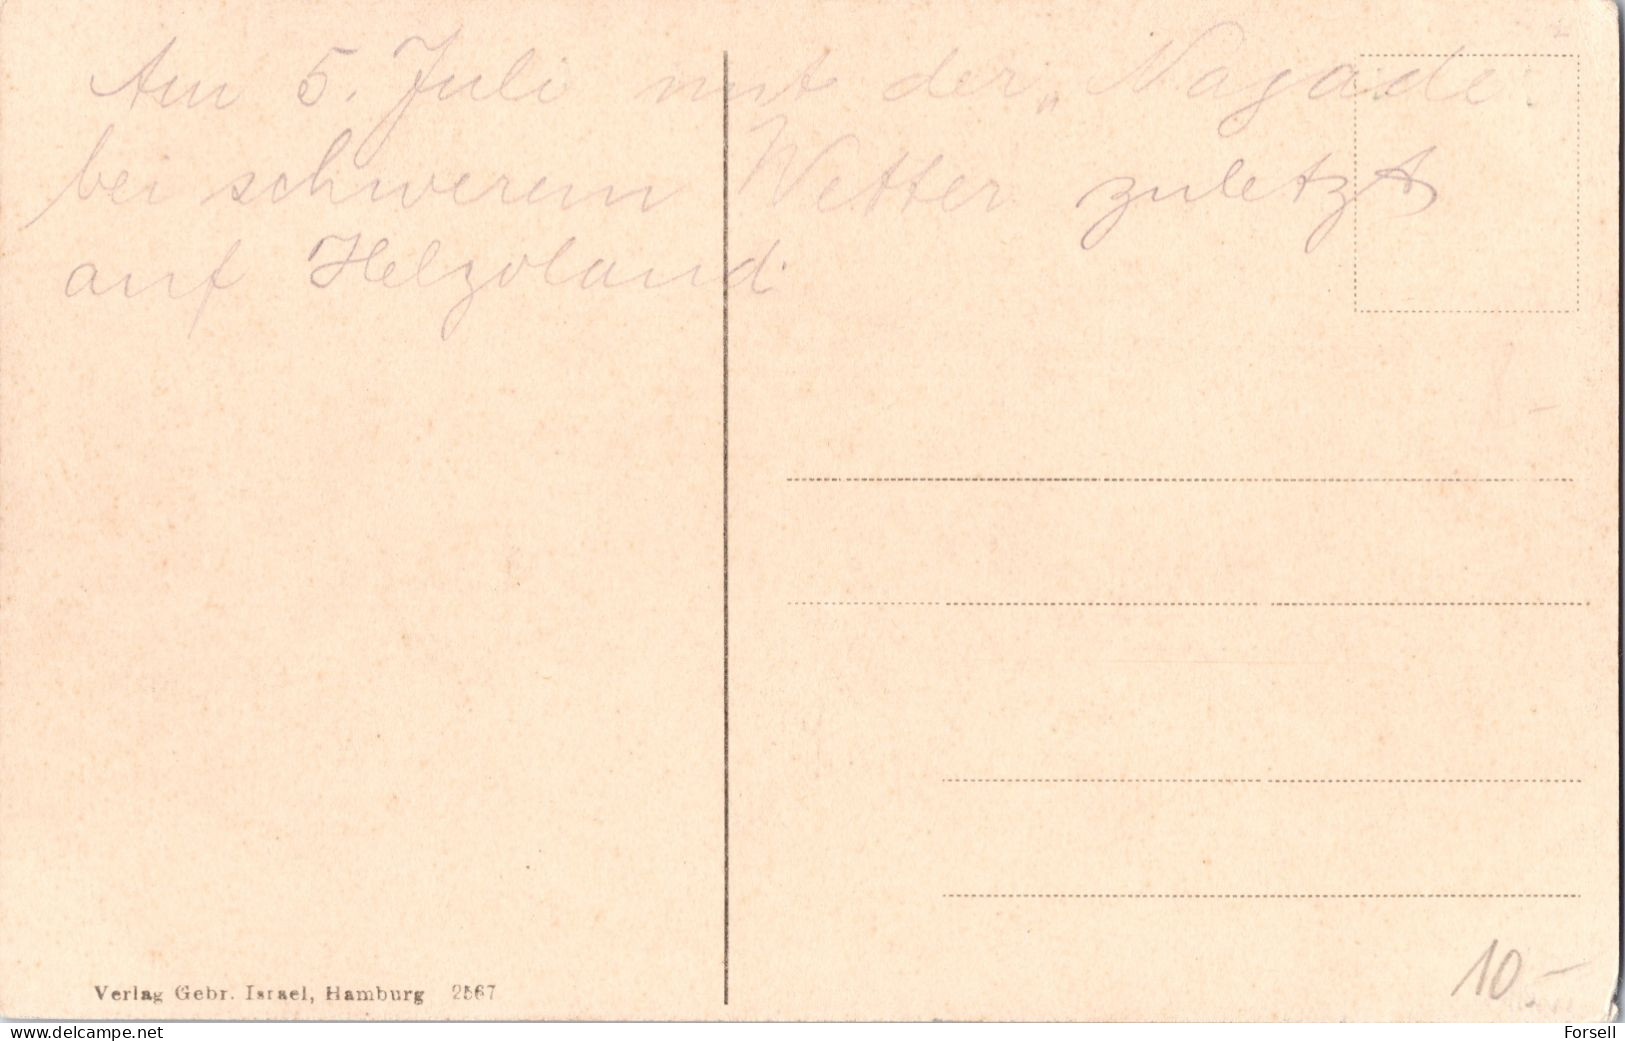 Am 5. Juli mit der „Nagade"
bei schwerem Wetter zuletzt
auf Helgoland.
Verlag Gebr. Israel, Hamburg 2567
10-
www.delcampe.net
Forsell